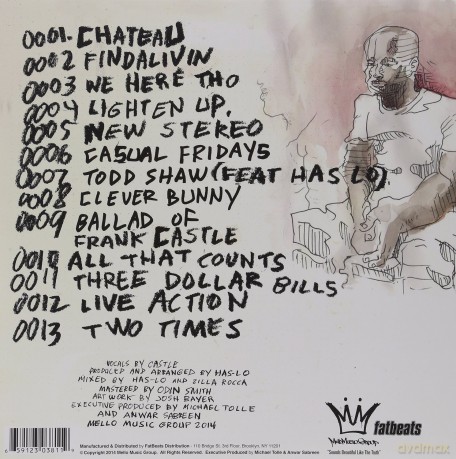 0001. CHATEAU
0002 FINDALIVIN
0003 WE HERE THO
0004 LIGHTEN UP.
0005 NEW STEREO
0006 CASUAL FRIDAYS
0007 TODD SHAW (FEAT HAS LO)
0008 CLEVER BUNNY
0009 BALLAD OF
FRANK CASTLE
0010 ALL THAT COUNTS
0011 THREE DOLLAR BILLS
0012 LIVE ACTION
0013 TWO TIMES
VOCALS BY CASTLE
PRODUCED AND ARRANGED BY HAS-LO
MIXED BY HAS-LO AND ZILLA ROCCA
MASTERED BY ODIN SMITH
ART WORK BY JOSH BAYER
EXECUTIVE PRODUCED BY MICHAEL TOLLE
AND ANWAR SABREEN
MELLO MUSIC GROUP 2014
MelloMusicGroup.
fatbeats
"Sounds Beautiful Like The Truth"
Manufactured & Distributed by FatBeats Distribution - 110 Bridge St. 3rd Floor, Brooklyn, NY 11201
© Copyright 2014 Mello Music Group. All Rights Reserved. Executive Produced by Michael Tolle & Anwar Sabreen
6 59123 03819
avdmax